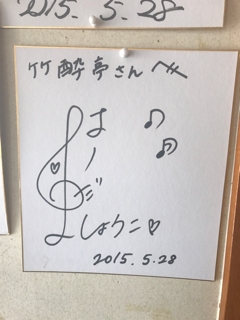 2015.5.28
竹酔亭さん江
はまだ
しょうこ♡
2015.5.28